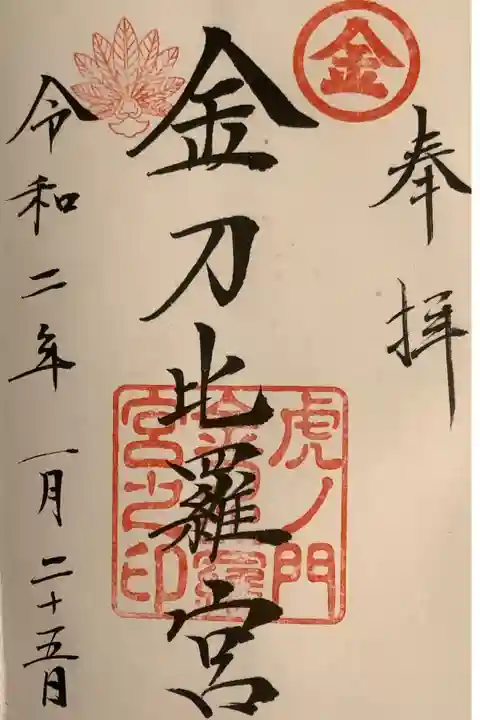 金
奉拝
金刀比羅宮
虎ノ門
宮之印
令和二年一月二十五日